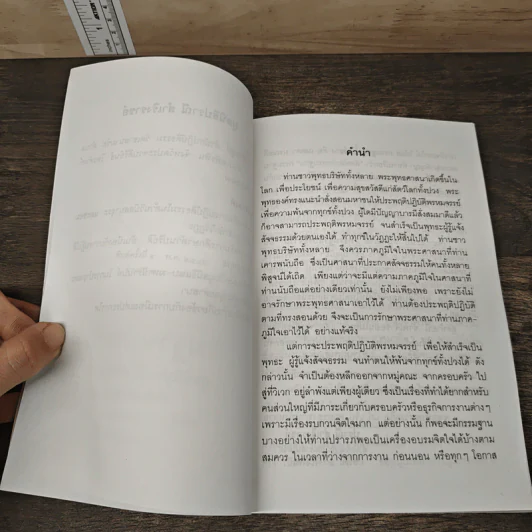 คำนำ
ท่านชาวพุทธบริษัททั้งหลาย พระพุทธศาสนาเกิดขึ้นใน
โลก เพื่อประโยชน์ เพื่อความสุขสวัสดีแก่สัตว์โลกทั้งปวง พระ
พุทธองค์ทรงแนะนำสั่งสอนมหาชนให้ประพฤติปฏิบัติพรหมจรรย์
เพื่อความพ้นจากทุกข์ทั้งปวง ผู้ใดมีปัญญาบารมีสั่งสมมาดีแล้ว
ก็อาจสามารถประพฤติพรหมจรรย์ จนสำเร็จเป็นพุทธะผู้รู้แจ้ง
สัจจธรรมด้วยตนเองได้ ทำทุกข์ในวัฏฏะให้สิ้นไปได้ ท่านชาว
พุทธบริษัททั้งหลาย จึงควรภาคภูมิใจในพระศาสนาที่ท่าน
เคารพนับถือ ซึ่งเป็นศาสนาที่ประกาศสัจจธรรมให้คนทั้งหลาย
พิสูจน์ได้เถิด เพียงแต่ว่าจะมีแต่ความภาคภูมิใจในศาสนาที่
ท่านนับถือแต่อย่างเดียวเท่านั้น ยังไม่เพียงพอ เพราะยังไม่
อาจรักษาพระพุทธศาสนาเอาไว้ได้ ท่านต้องประพฤติปฏิบัติ
ตามที่ทรงสอนด้วย จึงจะเป็นการรักษาพระศาสนาที่ท่านภาค-
ภูมิใจเอาไว้ได้ อย่างแท้จริง
แต่การจะประพฤติปฏิบัติพรหมจรรย์ เพื่อให้สำเร็จเป็น
พุทธะ ผู้รู้แจ้งสัจจธรรม จนทำตนให้พ้นจากทุกข์ทั้งปวงได้ ดัง
กล่าวนั้น จำเป็นต้องหลีกออกจากหมู่คณะ จากครอบครัว ไป
สู่ที่วิเวก อยู่ลำพังแต่เพียงผู้เดียว ซึ่งเป็นเรื่องที่ทำได้ยากสำหรับ
คนส่วนใหญ่ที่มีภาระเกี่ยวกับครอบครัวหรือธุรกิจการงานต่างๆ
เพราะมีเรื่องรบกวนจิตใจมาก แต่อย่างนั้น ก็พอจะมีกรรมฐาน
บางอย่างให้ท่านปรารภพอเป็นเครื่องอบรมจิตใจได้บ้างตาม
สมควร ในเวลาที่ว่างจากการงาน ก่อนนอน หรือทุกๆ โอกาส